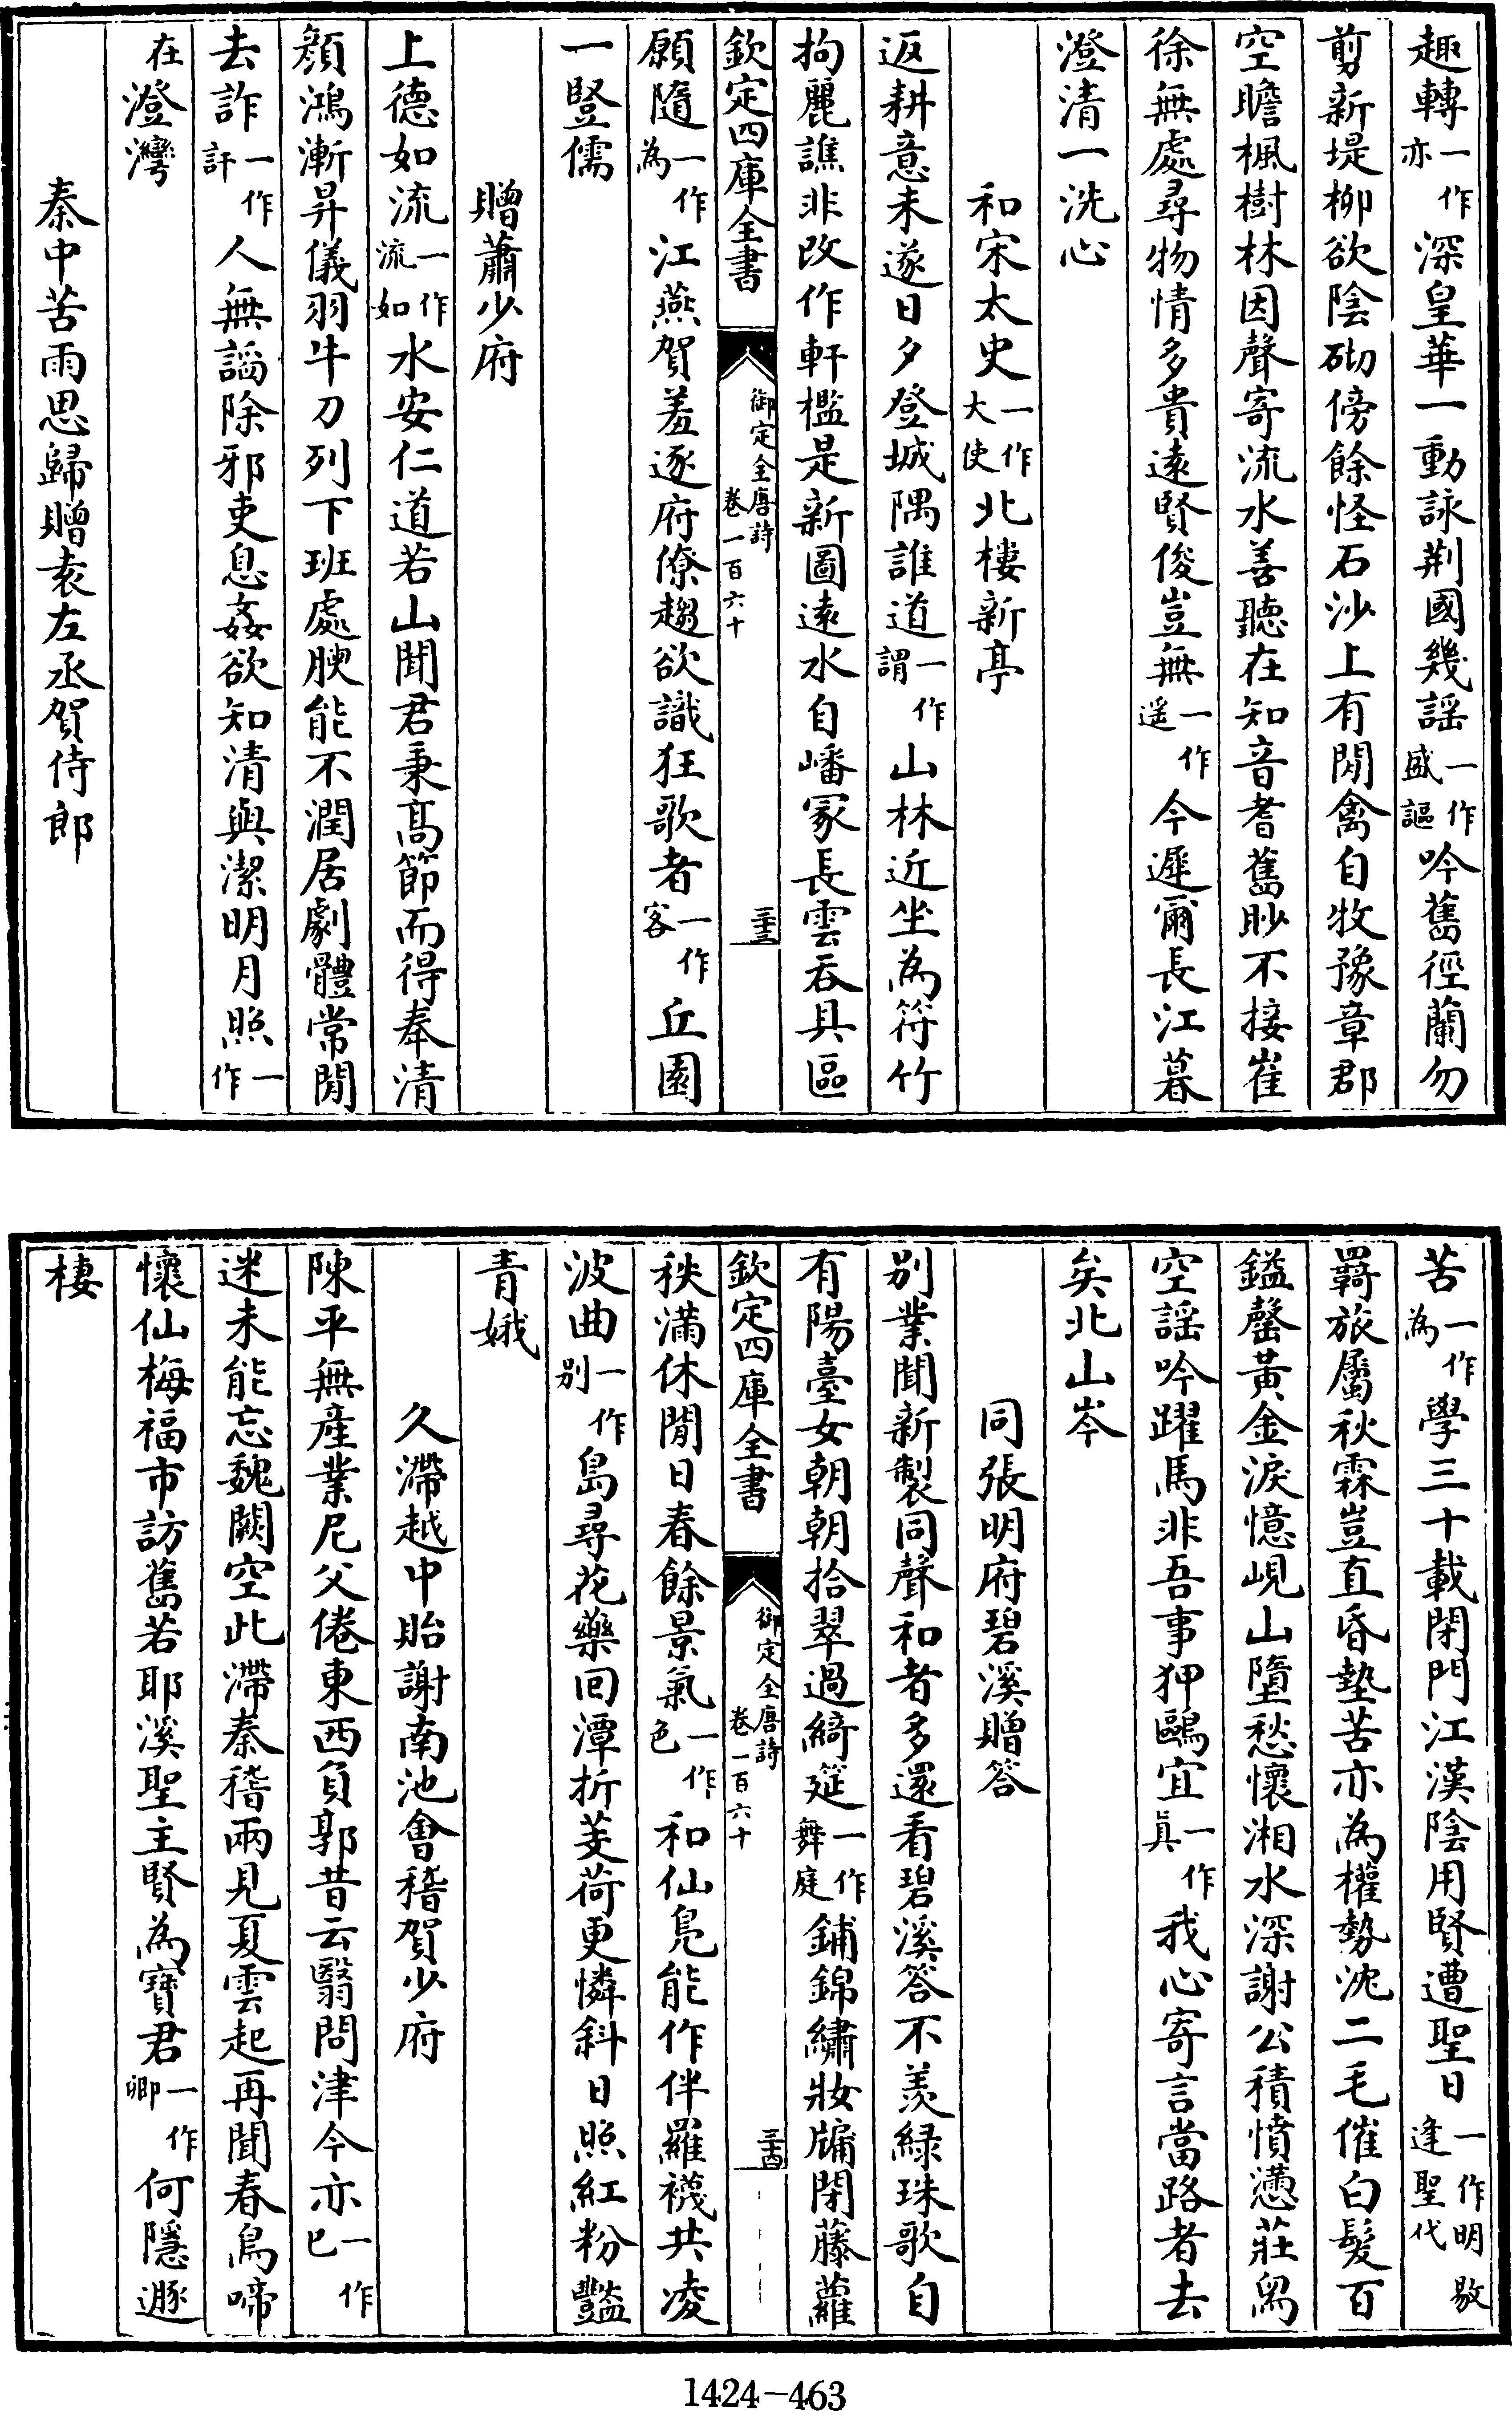 趣轉一作亦深皇華一動詠荆國幾謡一作盛謳吟舊徑蘭勿
剪新堤柳欲陰砌傍餘怪石沙上有閒禽自牧豫章郡
空瞻楓樹林因聲寄流水善聽在知音耆舊眇不接崔
徐無處尋物情多貴遠賢俊豈無一作遥今遲爾長江暮
澄清一洗心
和宋太史一作大使北樓新亭
返耕意未遂日夕登城隅誰道一作謂山林近坐為符竹
拘麗譙非改作軒檻是新圖遠水自嶓冢長雲吞具區
欽定四庫全書
御定全唐詩
卷一百六十
三十三
願隨一作為江燕賀羞逐府僚趨欲識狂歌者一作客丘園
一豎儒
贈蕭少府
上德如流一作流如水安仁道若山聞君秉高節而得奉清
顔鴻漸昇儀羽牛刀列下班處腴能不潤居劇體常閒
去詐一作訐人無謟除邪吏息姦欲知清與潔明月照一作
在澄灣
秦中苦雨思歸贈袁左丞賀侍郎
苦一作為學三十載閉門江漢陰用賢遭聖日一作明敭逢聖代
羇旅屬秋霖豈直昏墊苦亦為權勢沈二毛催白髮百
鎰罄黄金淚憶峴山墮愁懷湘水深謝公積憤懣莊舄
空謡吟躍馬非吾事狎鷗宜一作真我心寄言當路者去
矣北山岑
同張明府碧溪贈答
别業聞新製同聲和者多還看碧溪答不羡緑珠歌自
有陽臺女朝朝拾翠過綺筵一作舞庭鋪錦繡妝牖閉藤蘿
欽定四庫全書
御定全唐詩
卷一百六十
三十四
秩滿休閒日春餘景氣一作色和仙鳬能作伴羅襪共凌
波曲一作别島尋花藥回潭折芰荷更憐斜日照紅粉豔
青娥
久滯越中貽謝南池會稽賀少府
陳平無産業尼父倦東西負郭昔云翳問津今亦一作已
迷未能忘魏闕空此滯秦稽兩見夏雲起再聞春鳥啼
懷仙梅福市訪舊若耶溪聖主賢為寶君一作卿何隱遯
棲
1424-463